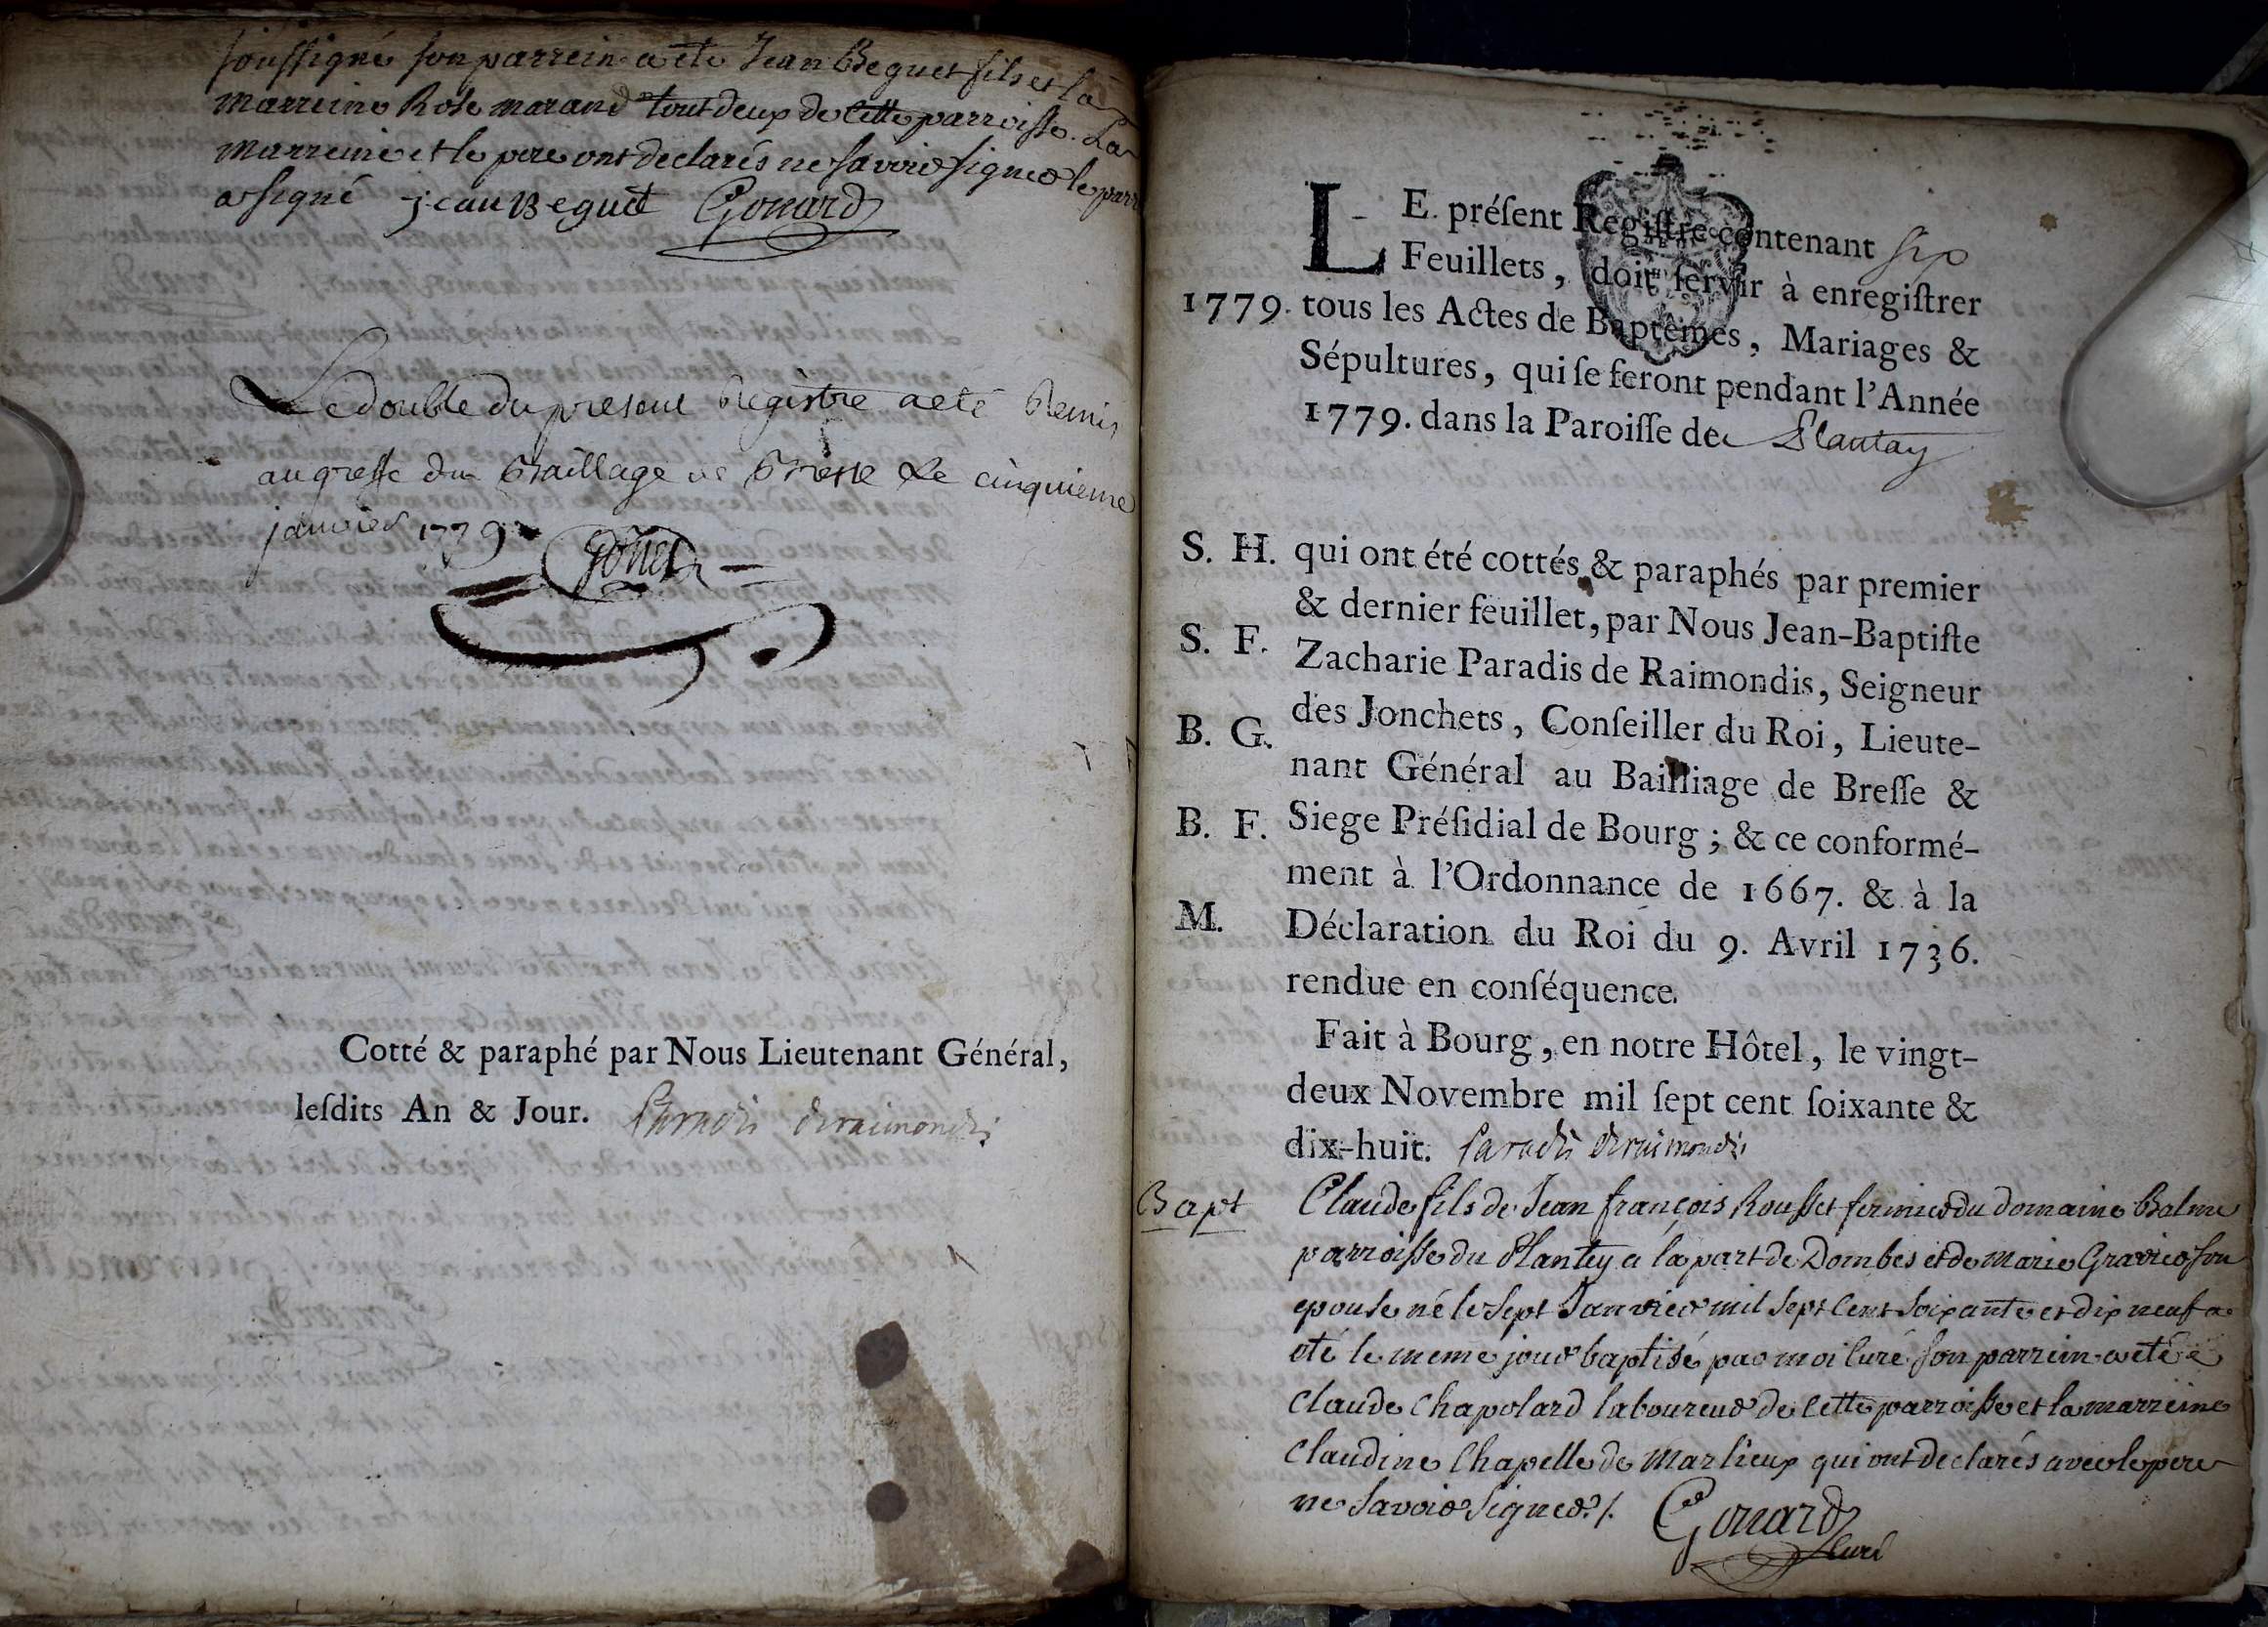 soussigné son parrein a été Jean Beguet fils et la
marreine Rose marand tout deux de cette parroisse. La
marreine et le pere ont declarés ne savoir signer le parr
a signé jean Beguet Gonard
Le double du present Registre a eté Remis
au greffe du Baillage de Bresse Le cinquieme
janvier 1779
Cotté & paraphé par Nous Lieutenant Général,
leſdits An & Jour. Paradis deraimondis
LE préſent Regiſtre contenant six
Feuillets, doit ſervir à enregiſtrer
1779. tous les Actes de Baptêmes, Mariages &
Sépultures, qui ſe feront pendant l'Année
1779. dans la Paroiſſe de Plantay
S. H. qui ont été cottés & paraphés par premier
& dernier feuillet, par Nous Jean-Baptiſte
S. F. Zacharie Paradis de Raimondis, Seigneur
des Jonchets, Conſeiller du Roi, Lieute-
B. G. nant Général au Bailliage de Breſſe &
B. F. Siege Préſidial de Bourg ; & ce conformé-
ment à l'Ordonnance de 1667. & à la
M. Déclaration du Roi du 9. Avril 1736.
rendue en conſéquence.
Fait à Bourg, en notre Hôtel, le vingt-
deux Novembre mil ſept cent ſoixante &
dix-huit. Paradis deraimondis
Bapt Claude fils de Jean françois Rousset fermier du domaine Balme
parroisse du Plantey a la part de Dombes et de Marie Gravier son
epouse né le sept Janvier mil sept cent soixante et dix neuf a
eté le meme jour baptisé par moi curé son parrein a été
claude Chapolard laboureur de cette parroisse et la marreine
claudine Chapelle de Marlieux qui ont declarés avec le pere
ne savoir signer ./. Gonard
curé